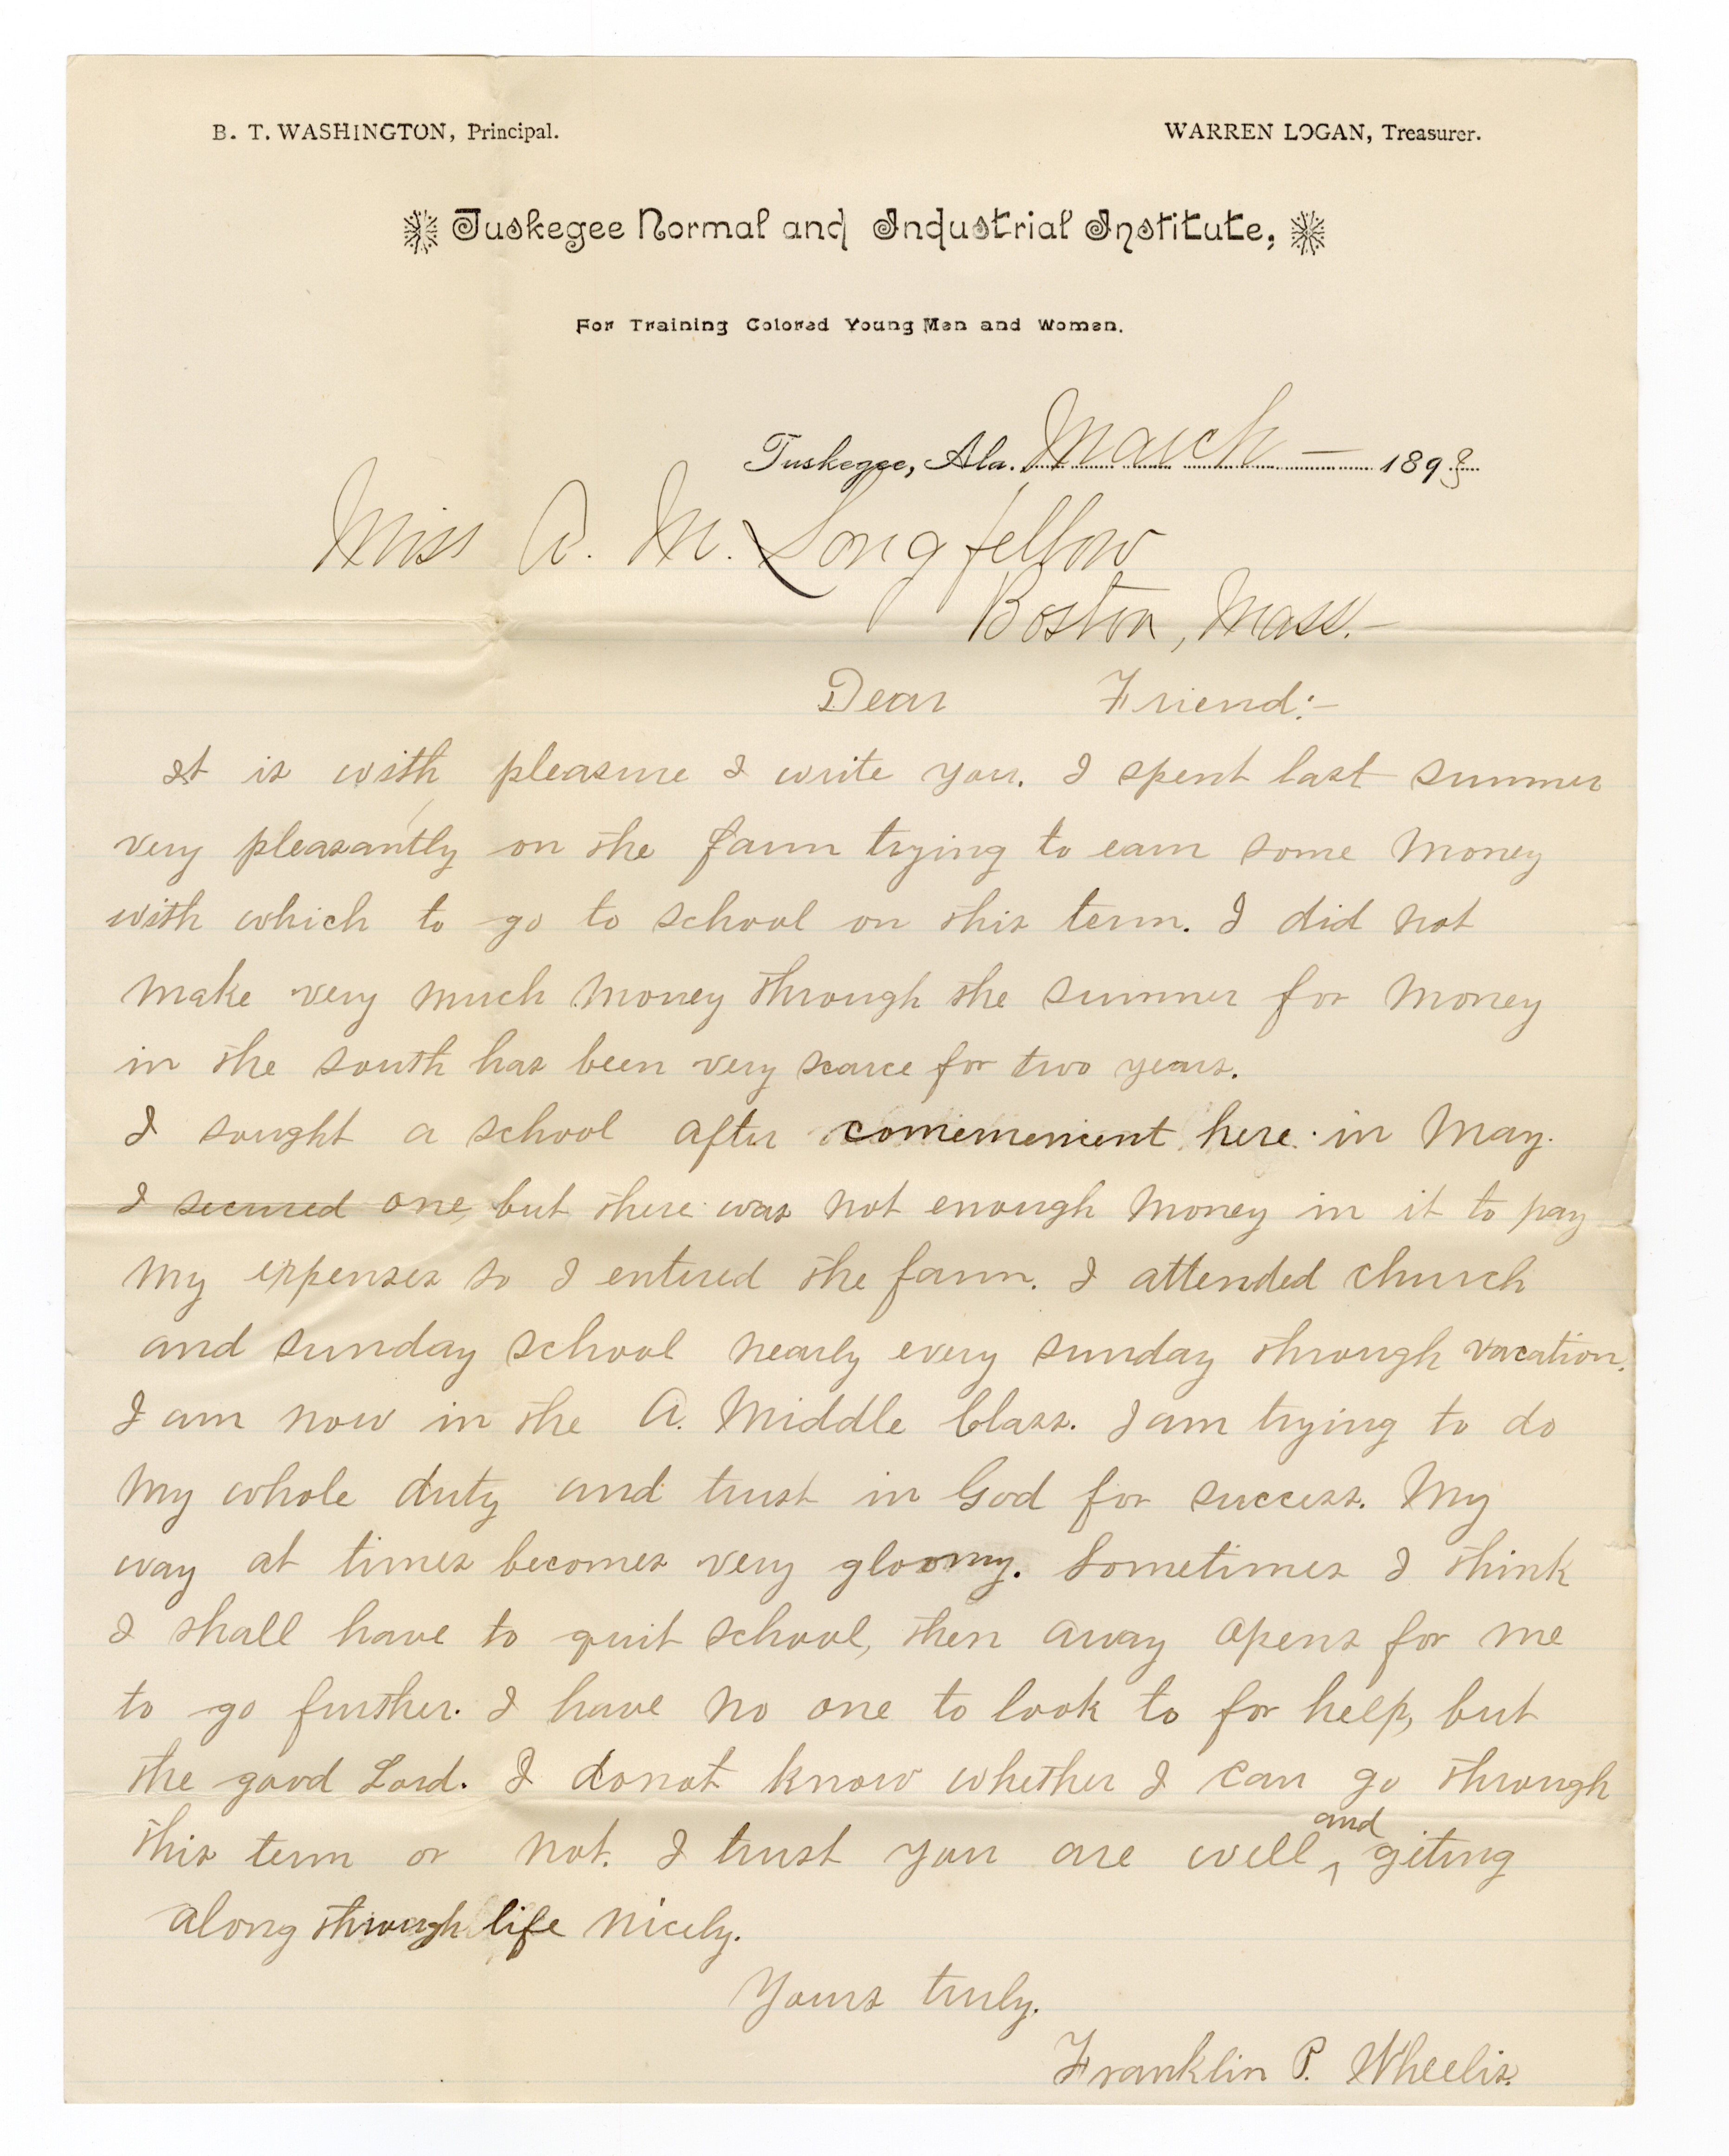 B. T. WASHINGTON, Principal.
WARREN LOGAN, Treasurer.
Tuskegee Normal and Industrial Institute,
For Training Colored Young Men and Women.
Tuskegee, Ala. March — 1893
Miss A. M. Longfellow
Boston, Mass.—
Dear Friend:—
It is with pleasure I write you. I spent last summer
very pleasantly on the farm trying to earn some money
with which to go to school on this term. I did not
make very much money through the summer for money
in the south has been very scarce for two years.
I sought a school after comemencent here in May.
I secured one, but there was not enough money in it to pay
my expenses so I entered the farm. I attended church
and sunday school nearly every sunday through vacation.
I am now in the A. Middle Class. I am trying to do
my whole duty and trust in God for success. My
way at times becomes very gloomy. Sometimes I think
I shall have to quit school, then away opens for me
to go further. I have no one to look to for help, but
the good Lord. I donot know whether I can go through
this term or not. I trust you are well and giting
along through life nicely.
Yours truly.
Franklin P. Wheelis.